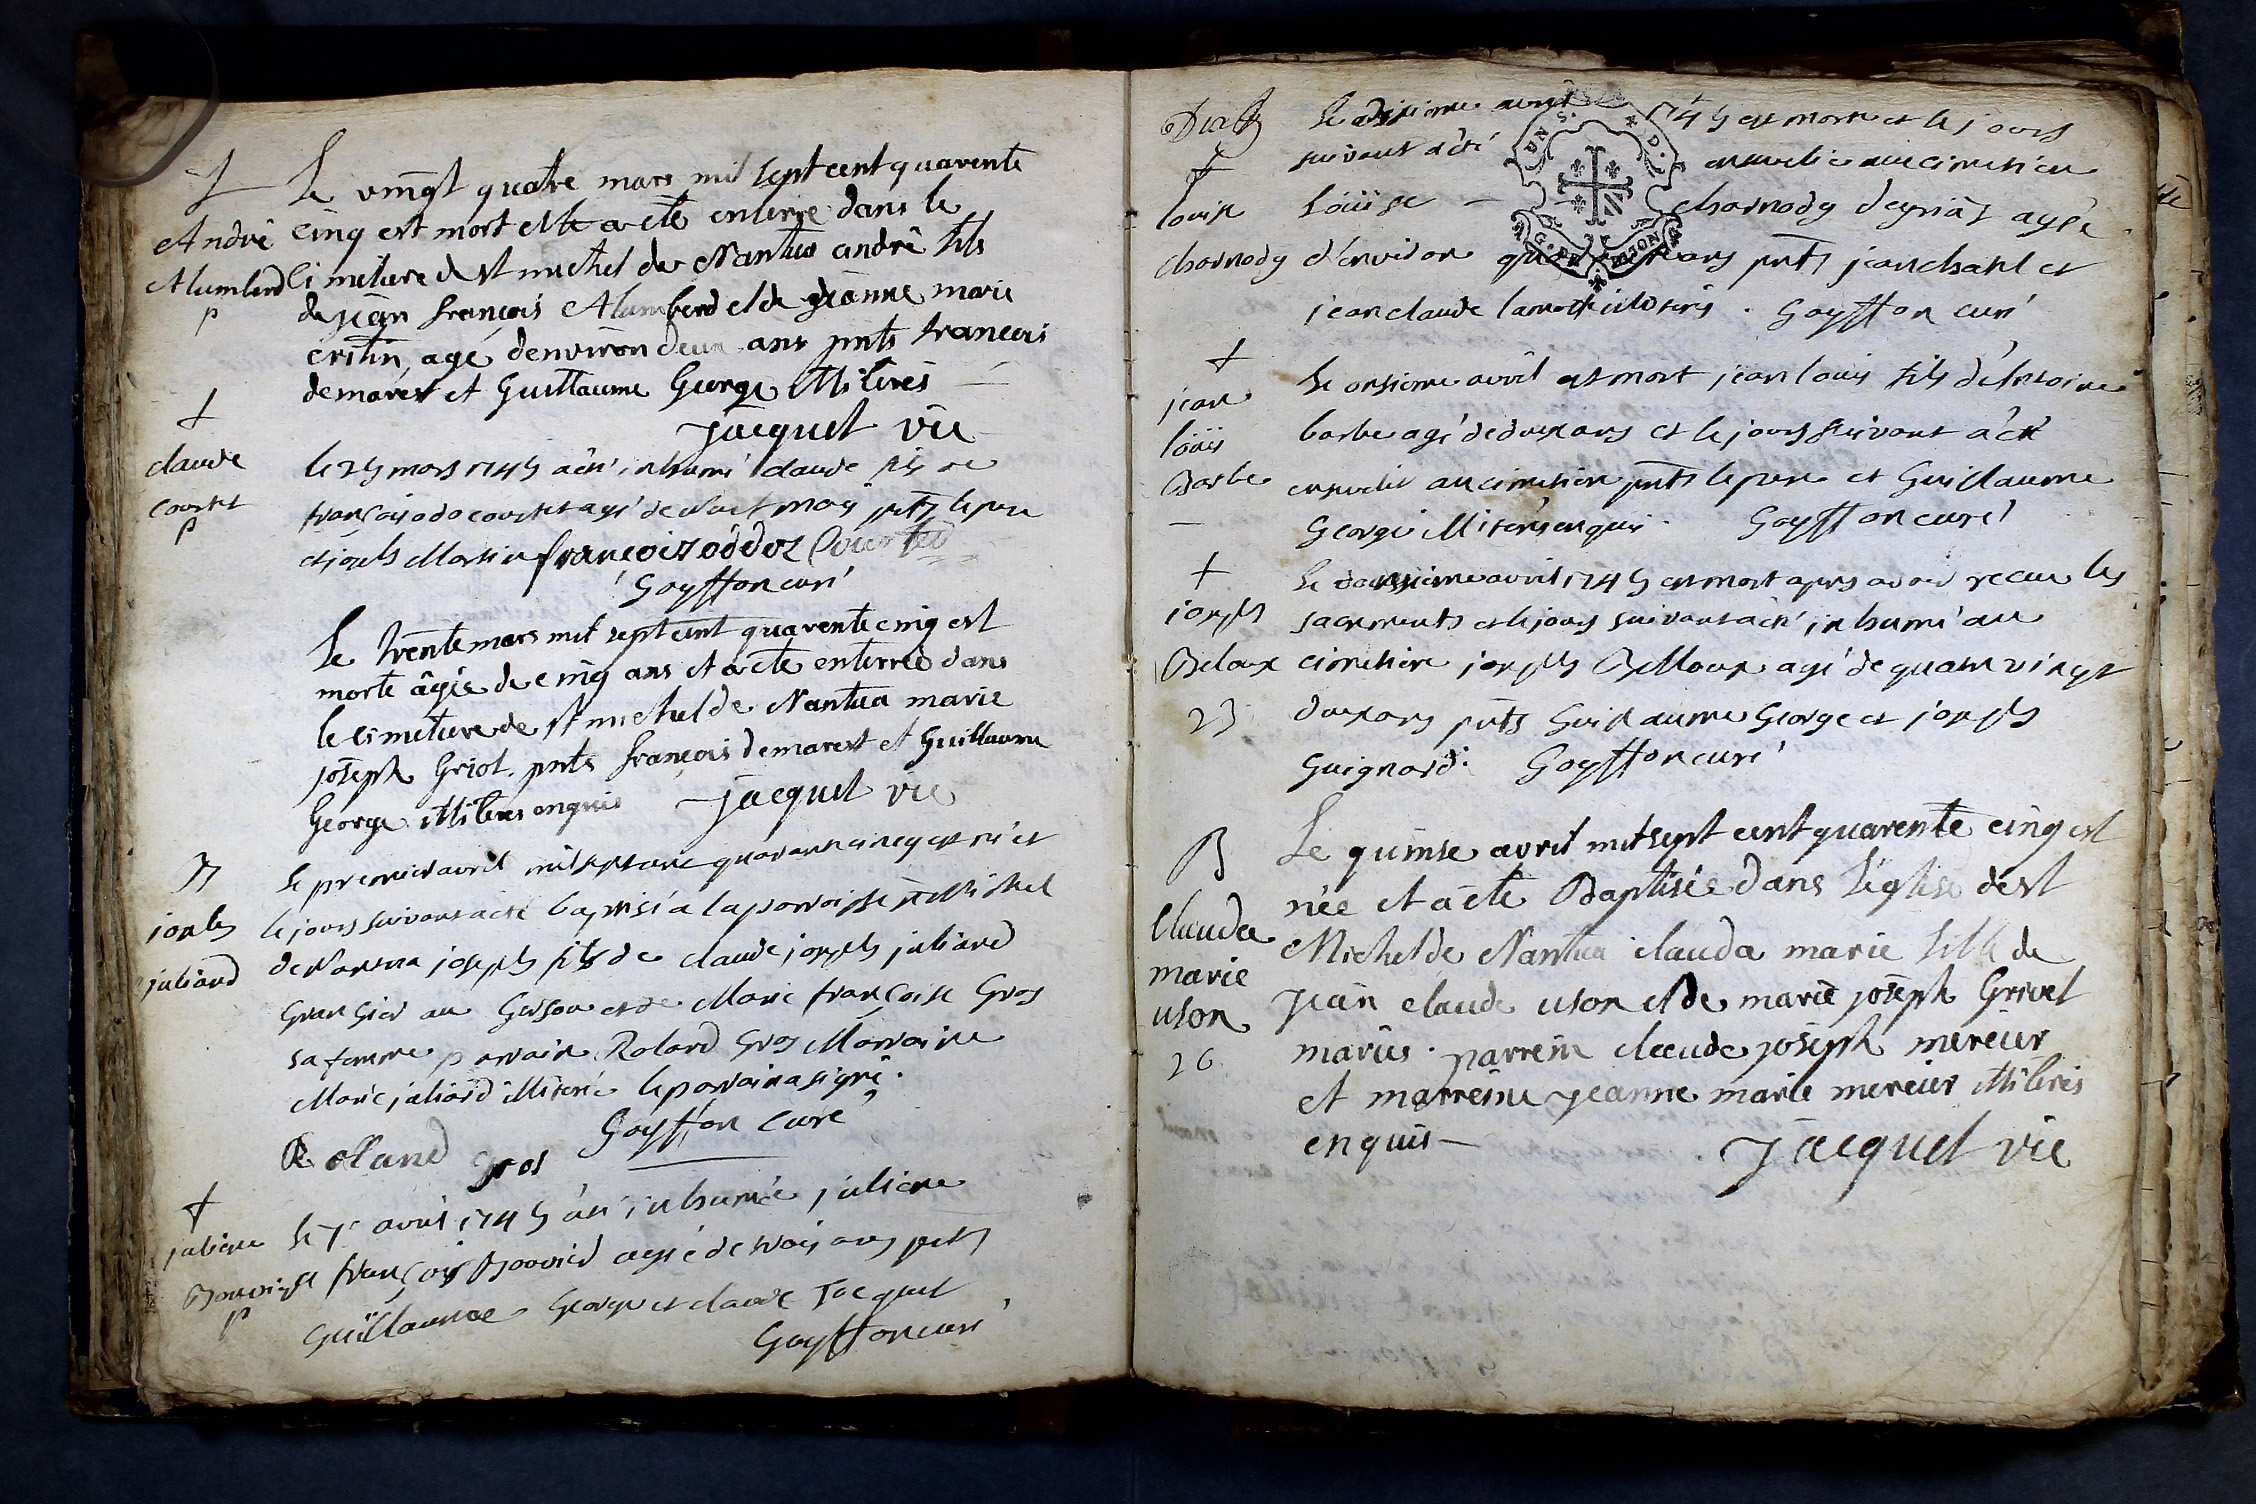 †
André
Alumberd
p
Le vingt quatre mars mil sept cent quarente
cinq est mort et a eté enterré dans le
cimetiere de st michel de Nantua andré fils
de jean françois Alumberd et de jeanne marie
agé denviron deux ans pnts francois
demarest et Guillaume George illiterés
Jacquet vic
†
claude
courtet
p
le 25 mars 1745 a été inhumé claude fils de
françois odo courtet agé de huit mois pnts le pere
et joseph Martin françois oddoz Courtet
Goyffon curé
Le trente mars mil sept cent quarente cinq est
morte âgée de cinq ans et a eté enterrée dans
le cimetiere de st michel de Nantua marie
joseph Griot. pnts françois demarest et Guillaume
George illiteres enquis Jacquet vic
B
joseph
juliard
Le premier avril mil sept cent quarante cinq est né et
le jours suivant a été baptisé a la paroisse st Michel
de Nantua joseph fils de claude joseph juliard
Granger au et de Marie françoise Gros
sa femme parrain Roland Gros Marraine
Marie juliard illiterée le parrain a signé.
Goyffon Curé
Rolland gros
†
juliene
p
Le 7e avril 1745 a été inhumée juliene
françoise Bouvier agée de trois ans pnts
Guillaume George et claude Jacquet
Goyffon curé
†
louise
charnody
Le dixieme avril 1745 est morte et le jours
suivant a été ensevelie au cimetiere
Loüise charnody agée
d'environ ans pnts jean charl et
jean claude illiterés. Goyffon curé
†
jean
loüis
Barbe
Le onsieme avril est mort jean louis fils d'Antoine
barbe agé de deux ans et le jours suivant a été
ensevelit au cimetiere pnts le pere et Guillaume
George illiterés enquis. Goyffon curé
†
joseph
Beloux
23
Le avril 1745 est mort apres avoir receu les
sacrements et le jours suivant a été inhumé au
cimetiere joseph Belloux agé de quatre vingt
deux ans pnts Guillaume George et joseph
Guignard. Goyffon curé
B
Clauda
marie
uson
26
Le quinse avril mil sept cent quarente cinq est
née et a eté Baptisée dans l'église de st
Michel de Nantua clauda marie fille de
Jean claude uson et de marie joseph Grivel
mariés. parrein claude joseph mercier
et marreine jeanne marie mercier illiterés
enquis Jacquet vic